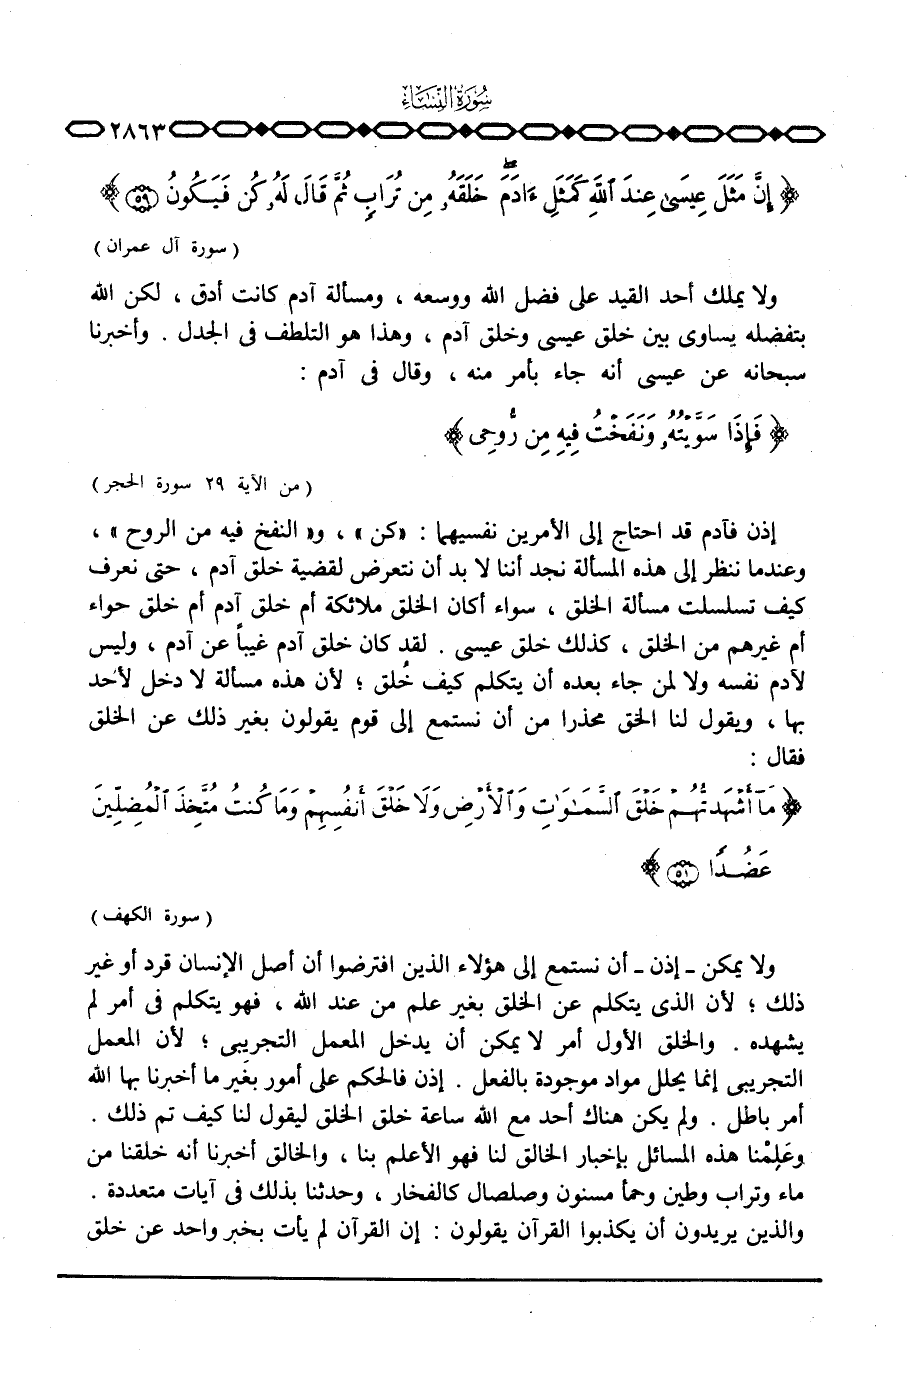 سُورَةُ النِّسَاءِ
٢٨٦٣
﴿ إِنَّ مَثَلَ عِيسَىٰ عِندَ ٱللَّهِ كَمَثَلِ ءَادَمَ ۖ خَلَقَهُۥ مِن تُرَابٍ ثُمَّ قَالَ لَهُۥ كُن فَيَكُونُ ٥٩ ﴾
( سورة آل عمران )
ولا يملك أحد القيد على فضل الله ووسعه ، ومسألة آدم كانت أدق ، لكن الله
بتفضله يساوى بين خلق عيسى وخلق آدم ، وهذا هو التلطف فى الجدل . وأخبرنا
سبحانه عن عيسى أنه جاء بأمر منه ، وقال فى آدم :
﴿ فَإِذَا سَوَّيْتُهُۥ وَنَفَخْتُ فِيهِ مِن رُّوحِى ﴾
( من الآية ٢٩ سورة الحجر )
إذن فآدم قد احتاج إلى الأمرين نفسيهما : «كن» ، و« النفخ فيه من الروح » ،
وعندما ننظر إلى هذه المسألة نجد أننا لا بد أن نتعرض لقضية خلق آدم ، حتى نعرف
كيف تسلسلت مسألة الخلق ، سواء أكان الخلق ملائكة أم خلق آدم أم خلق حواء
أم غيرهم من الخلق ، كذلك خلق عيسى . لقد كان خلق آدم غيباً عن آدم ، وليس
لآدم نفسه ولا لمن جاء بعده أن يتكلم كيف خُلق ؛ لأن هذه مسألة لا دخل لأحد
بها ، ويقول لنا الحق محذرا من أن نستمع إلى قوم يقولون بغير ذلك عن الخلق
فقال :
﴿ مَّآ أَشْهَدتُّهُمْ خَلْقَ ٱلسَّمَـٰوَٰتِ وَٱلْأَرْضِ وَلَا خَلْقَ أَنفُسِهِمْ وَمَا كُنتُ مُتَّخِذَ ٱلْمُضِلِّينَ
عَضُدًا ٥١ ﴾
( سورة الكهف )
ولا يمكن ـ إذن ـ أن نستمع إلى هؤلاء الذين افترضوا أن أصل الإنسان قرد أو غير
ذلك ؛ لأن الذى يتكلم عن الخلق بغير علم من عند الله ، فهو يتكلم فى أمر لم
يشهده . والخلق الأول أمر لا يمكن أن يدخل المعمل التجريبى ؛ لأن المعمل
التجريبى إنما يحلل مواد موجودة بالفعل . إذن فالحكم على أمور بغَير ما أخبرنا بها الله
أمر باطل . ولم يكن هناك أحد مع الله ساعة خلق الخلق ليقول لنا كيف تم ذلك .
وعَلِمْنا هذه المسائل بإخبار الخالق لنا فهو الأعلم بنا ، والخالق أخبرنا أنه خلقنا من
ماء وتراب وطين وحمأ مسنون وصلصال كالفخار ، وحدثنا بذلك فى آيات متعددة .
والذين يريدون أن يكذبوا القرآن يقولون : إن القرآن لم يأت بخبر واحد عن خلق